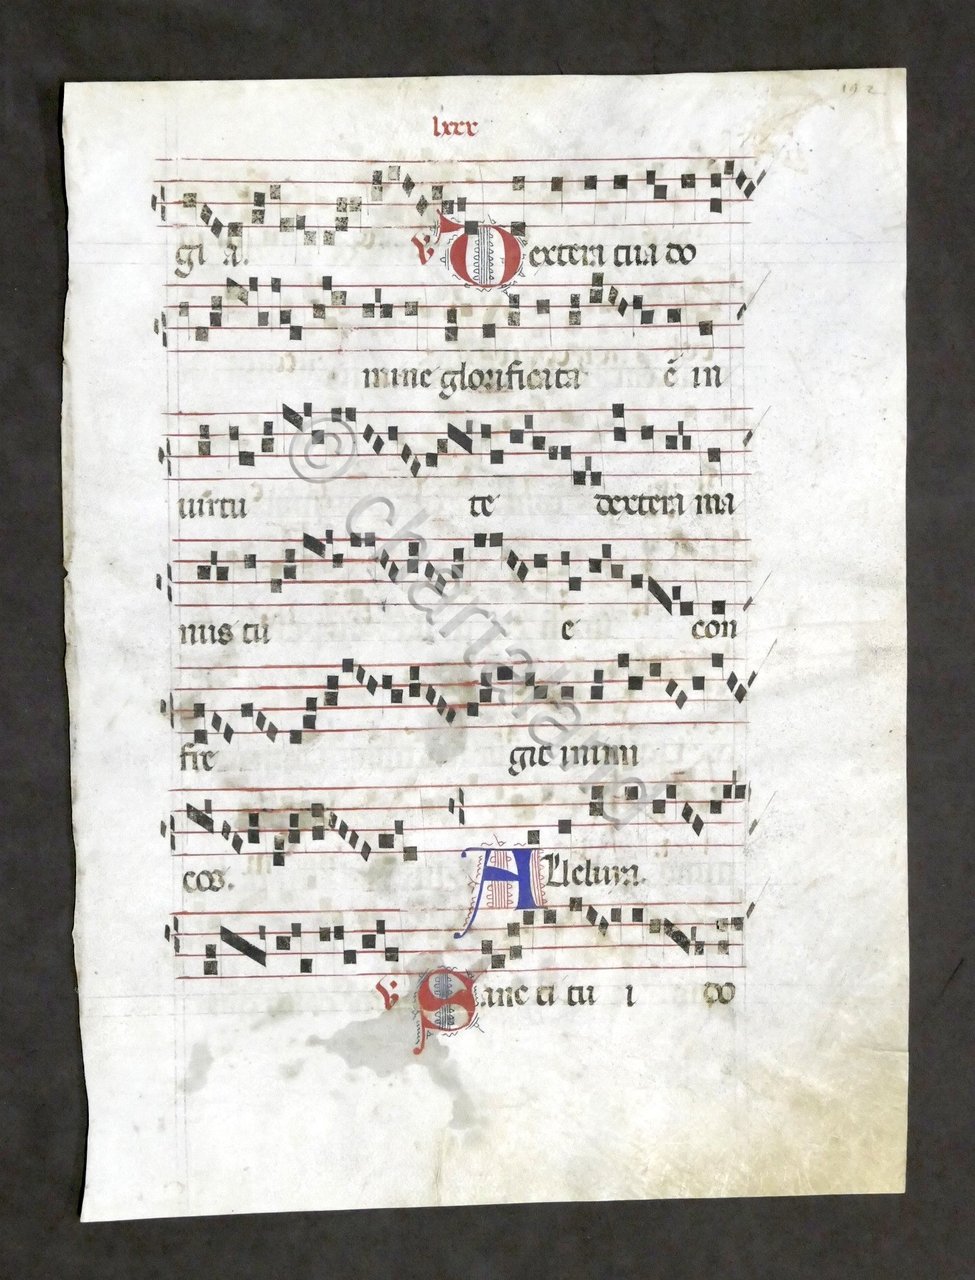 192
lxxx
gi a. V Dextera tua do
mine glorificata ē in
uirtu te dextera ma
nus tu e con
fre git inimi
cos. Alleluya.
V Sancti tu i do
© chartalaria